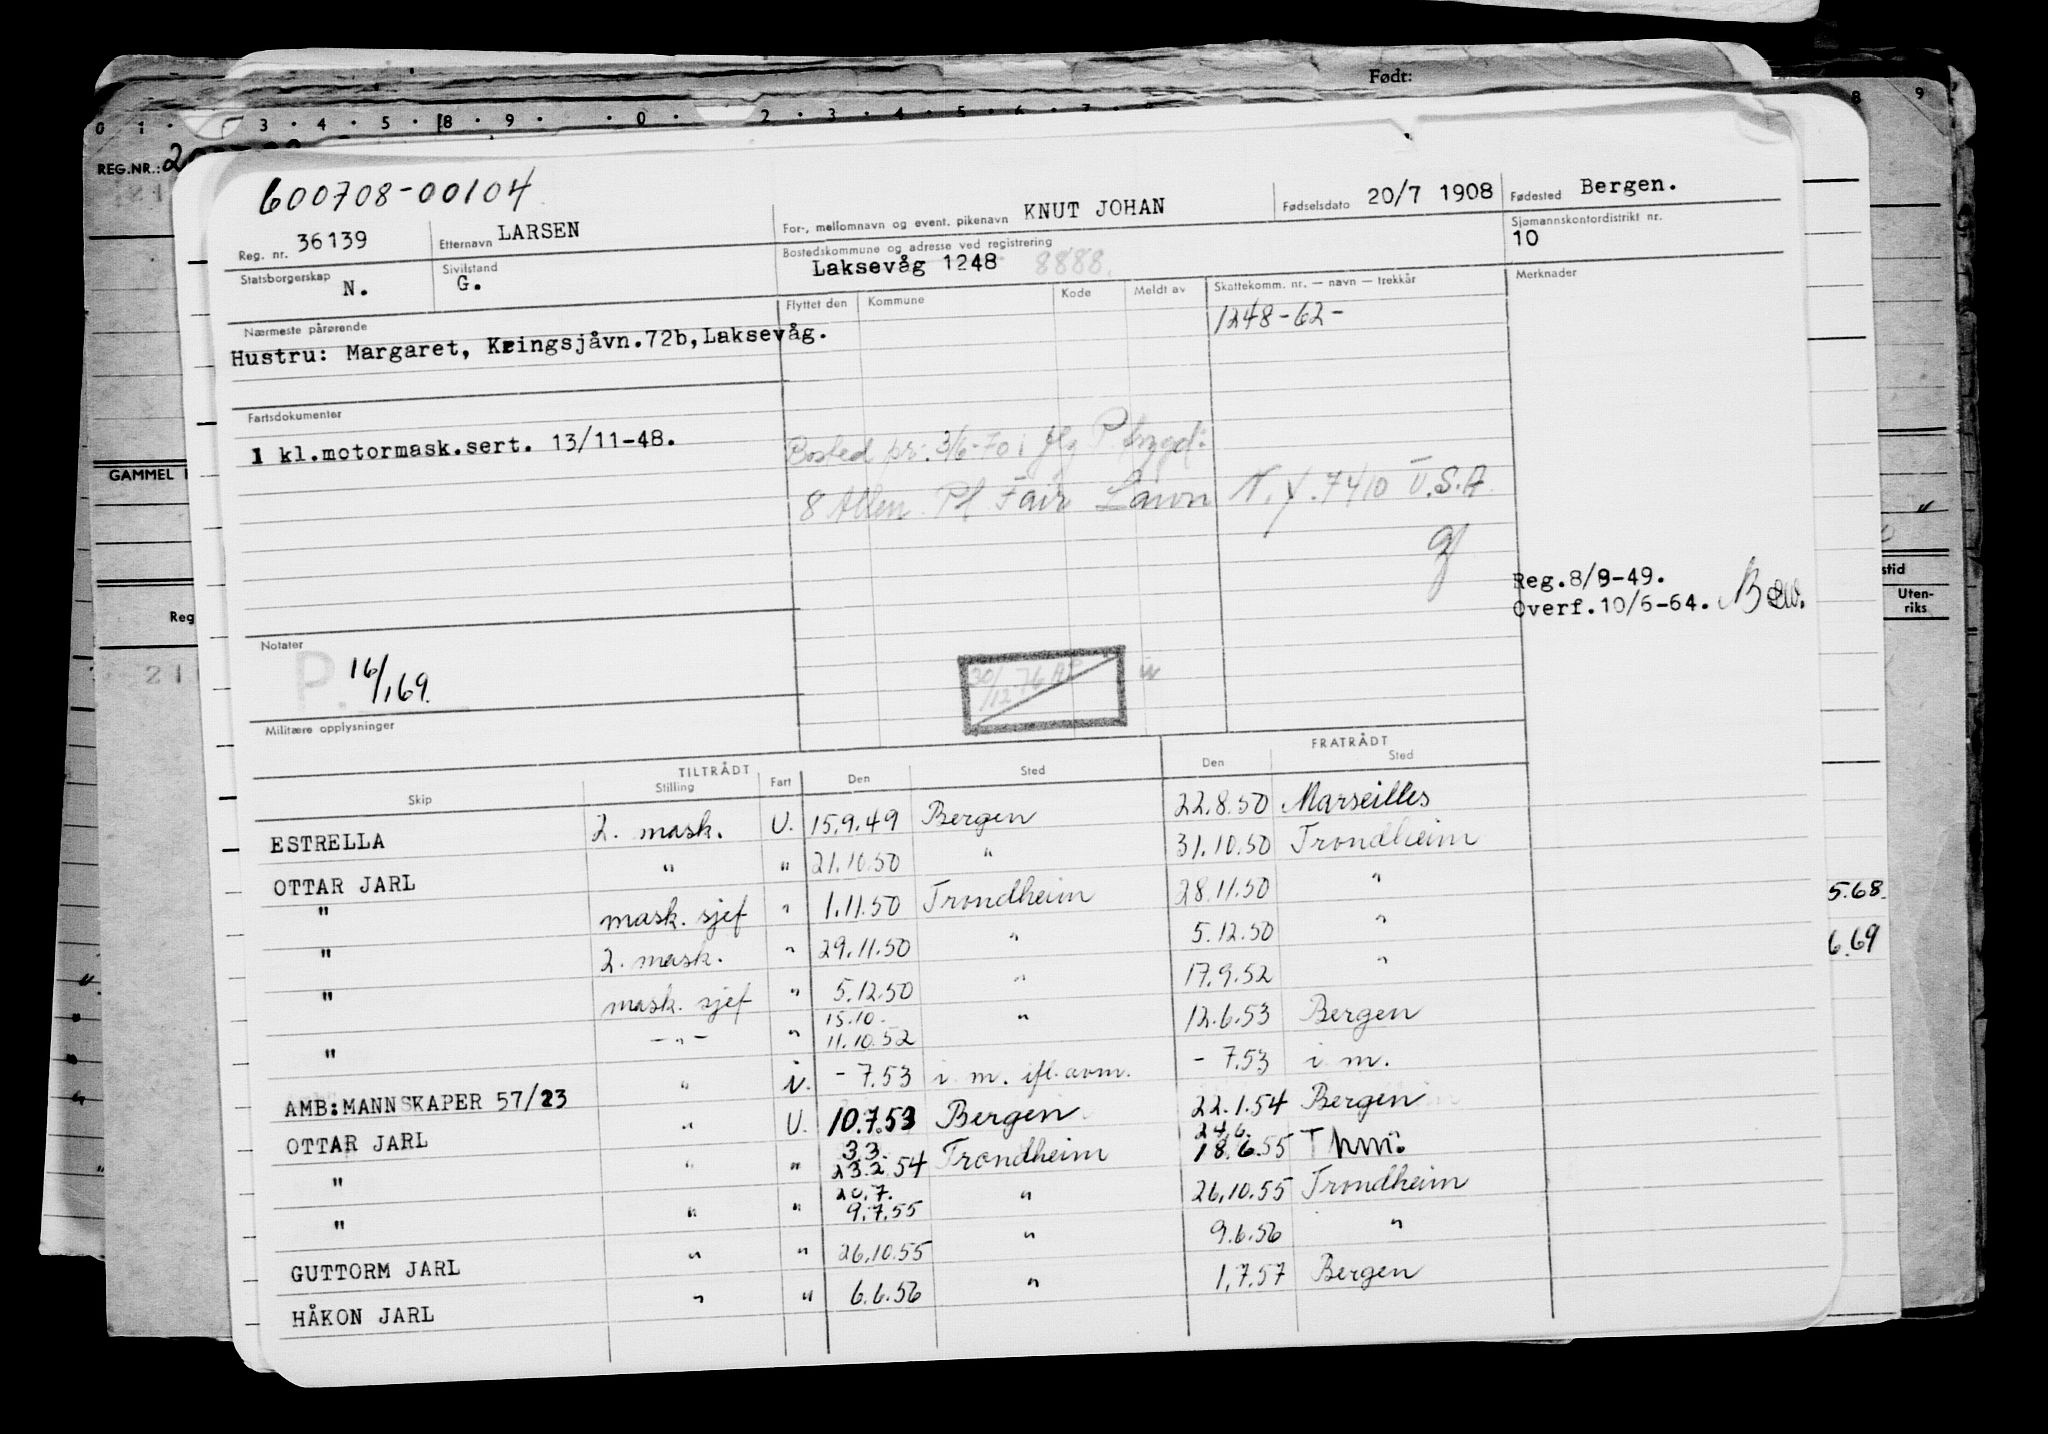 Født:
0 1 · 3 · 4 · 5 · 8 · 9 · · 0 · 2 · 3 · 4 · 5 · 6 · 7 · 8 9
REG.NR.: 2
600708-00104
Reg. nr. 36139 Etternavn LARSEN For-, mellomnavn og event. pikenavn KNUT JOHAN Fødselsdato 20/7 1908 Fødested Bergen.
Statsborgerskap N. Sivilstand G. Bostedskommune og adresse ved registrering Laksevåg 1248 8888. Sjømannskontordistrikt nr. 10
Nærmeste pårørende Flyttet den Kommune Kode Meldt av Skattekomm. nr. — navn — trekkår Merknader
1248-62-
Hustru: Margaret, Kringsjåvn.72b, Laksevåg.
Fartsdokumenter
1 kl.motormask.sert. 13/11-48.
Bosted pr. 3/6-70 i flg P. trygd:
8 Allen Pl Fair Lawn N.Y. 7410 U.S.A
GAMMEL
Reg.8/9-49.
Overf.10/6-64.
Reg
stid
Uten-
riks
Notater
P. 16/1 69.
30/12 76
Militære opplysninger
TILTRÅDT FRATRÅDT
Skip Stilling Fart Den Sted Den Sted
ESTRELLA 2. mask. U. 15.9.49 Bergen 22.8.50 Marseilles
OTTAR JARL " " 21.10.50 " 31.10.50 Trondheim
" mask. sjef " 1.11.50 Trondheim 28.11.50 "
" 2. mask. " 29.11.50 " 5.12.50 "
" mask. sjef " 5.12.50 " 17.9.52 "
" - " - " 15.10. 11.10.52 " 12.6.53 Bergen
AMB:MANNSKAPER 57/23 " i. - 7.53 i. m. ifl. avm. - 7.53 i m.
OTTAR JARL " U. 10.7.53 Bergen 22.1.54 Bergen
" " " 3.3. 23.2.54 Trondheim 24.6. 18.6.55 Thm:
" " " 20.7. 9.7.55 " 26.10.55 Trondheim
GUTTORM JARL " " 26.10.55 " 9.6.56 "
HÅKON JARL " " 6.6.56 " 1.7.57 Bergen
5.68.
6.69